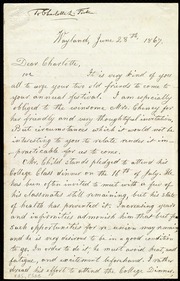 To Charlotte F.
Wayland, June 28th 1867.
Dear Charlotte,
It is very kind of you
all to urge your two old friends to come to
your annual festival. I am especially
obliged to the winsome Mrs. Cheney for
his friendly and very thoughtful invitation.
But circumstances which it would not be
interesting to you to relate render it im-
practicable for us to come.
Mr. Child stands pledged to attend his
College Class dinner on the 16th of July. He
has been often invited to meet with a few of
his classmates still remaining, but the state
of health has prevented it. Increasing years
and infirmities admonish him that but few
such opportunities for re-union may remain
and he is very desirous to be in good condition
to go. In order to it, he must avoid heat, and
fatigue, and excitement beforehand. I really
dread his effort to attend the College Dinner,